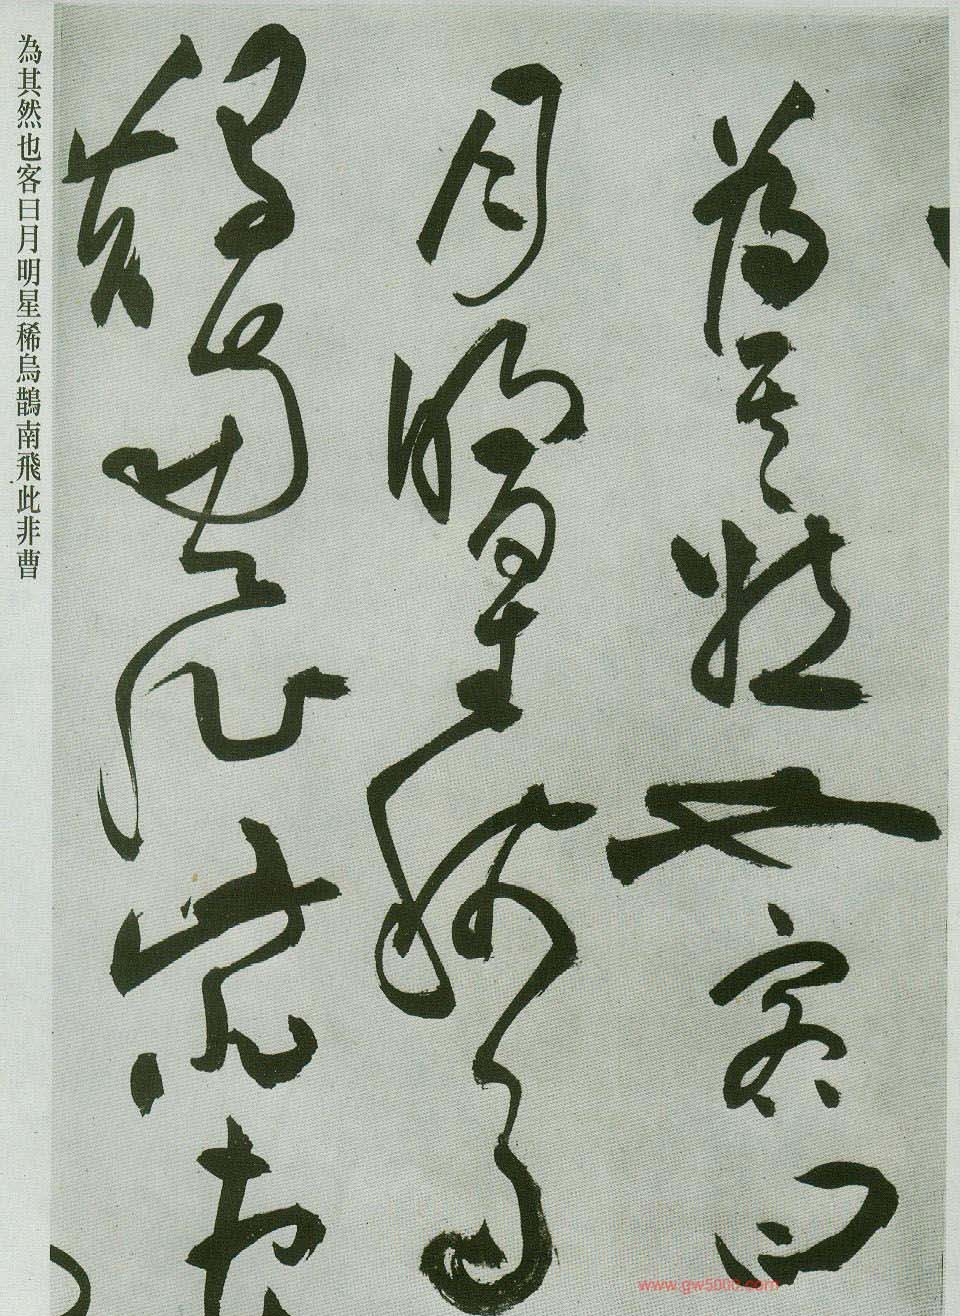 為其然也客曰
月明星稀烏
鵲南飛此非曹
為其然也客曰月明星稀烏鵲南飛此非曹
www.gw5000.com